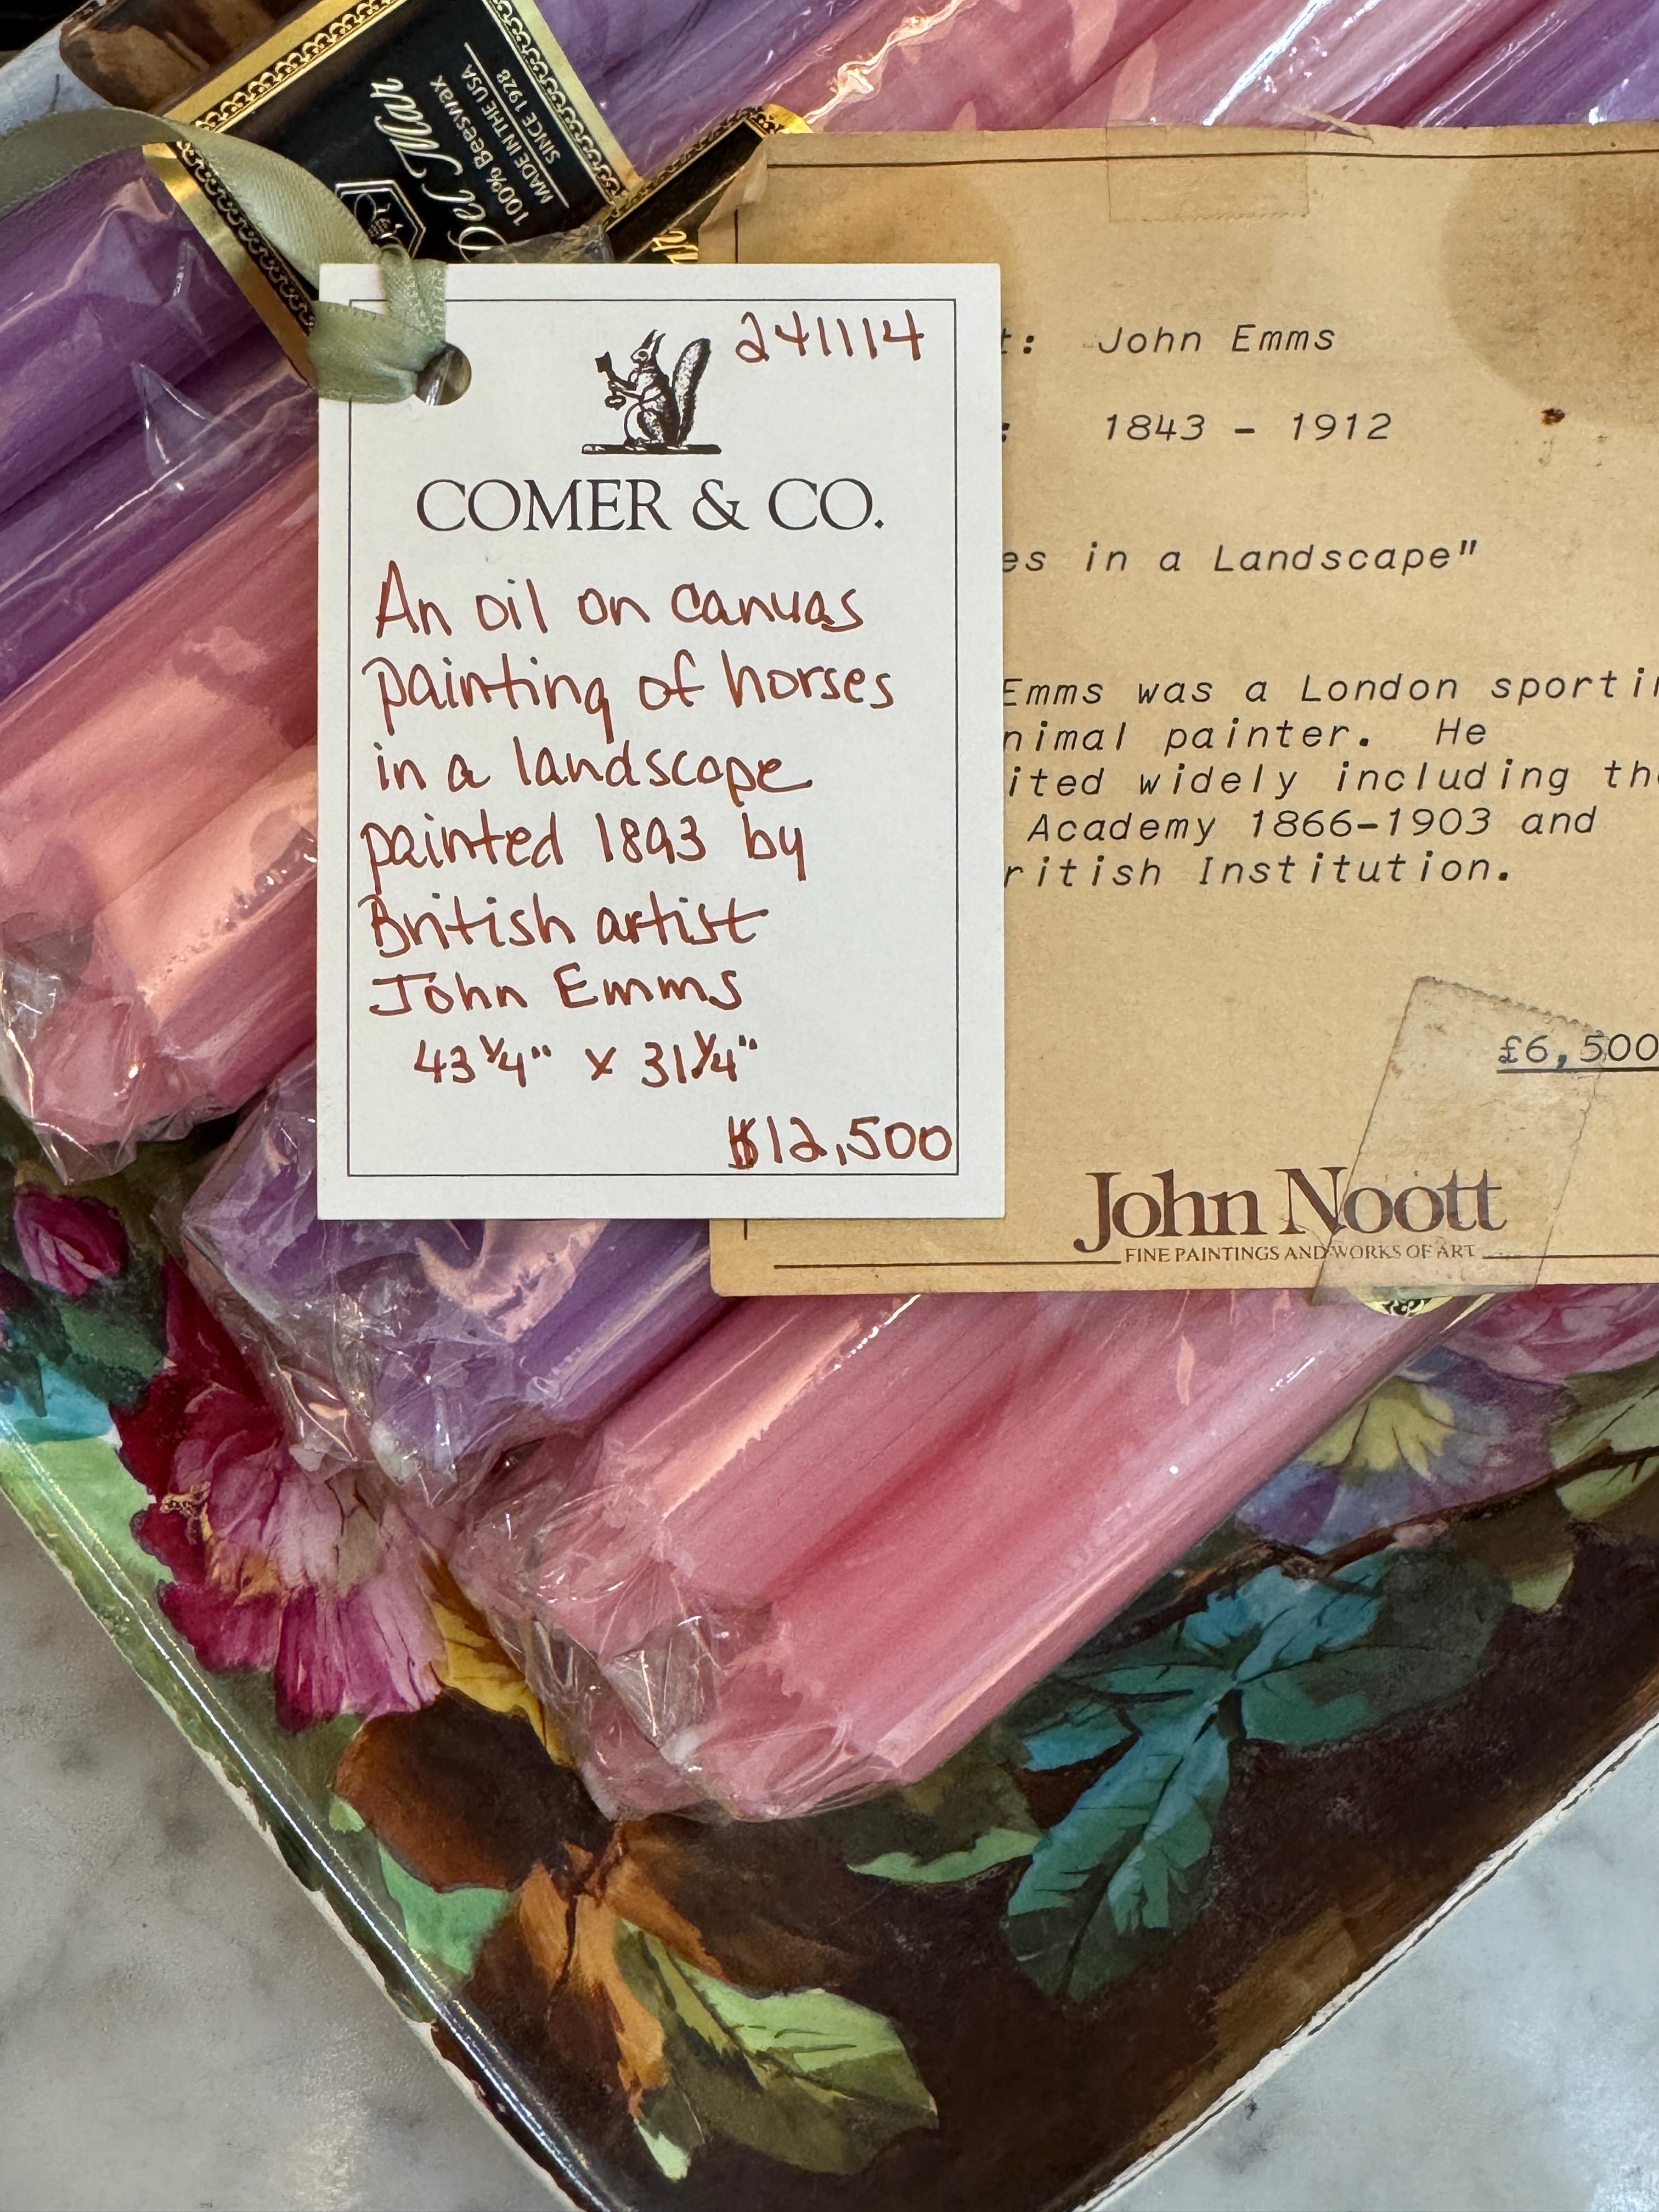 Del Mar
100% Beeswax
MADE IN THE USA
SINCE 1928
241114
COMER & CO.
An oil on canvas
painting of horses
in a landscape
painted 1893 by
British artist
John Emms
43 1/4" x 31 1/4"
$12,500
t: John Emms
: 1843 - 1912
es in a Landscape"
Emms was a London sportin
nimal painter. He
ited widely including the
Academy 1866-1903 and
ritish Institution.
£6,500
John Noott
FINE PAINTINGS AND WORKS OF ART